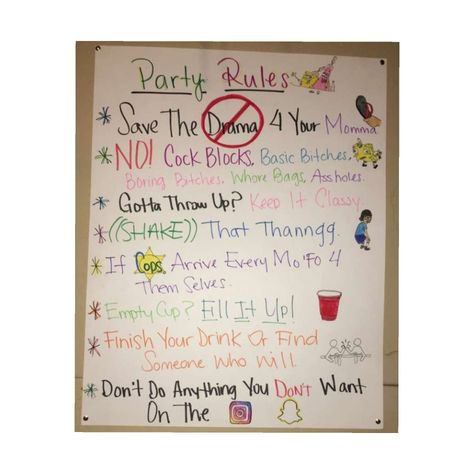 Party Rules
* Save The Drama 4 Your Momma
* NO! Cock Blocks, Basic Bitches,
Boring Bitches, Whore Bags, Assholes.
* Gotta Throw Up? Keep It Classy.
* ((SHAKE)) That Thanngg.
* If Cops Arrive Every Mo'Fo 4
Them Selves.
* Empty Cup? Fill It Up!
* Finish Your Drink Or Find
Someone Who Will.
* Don't Do Anything You Don't Want
On The